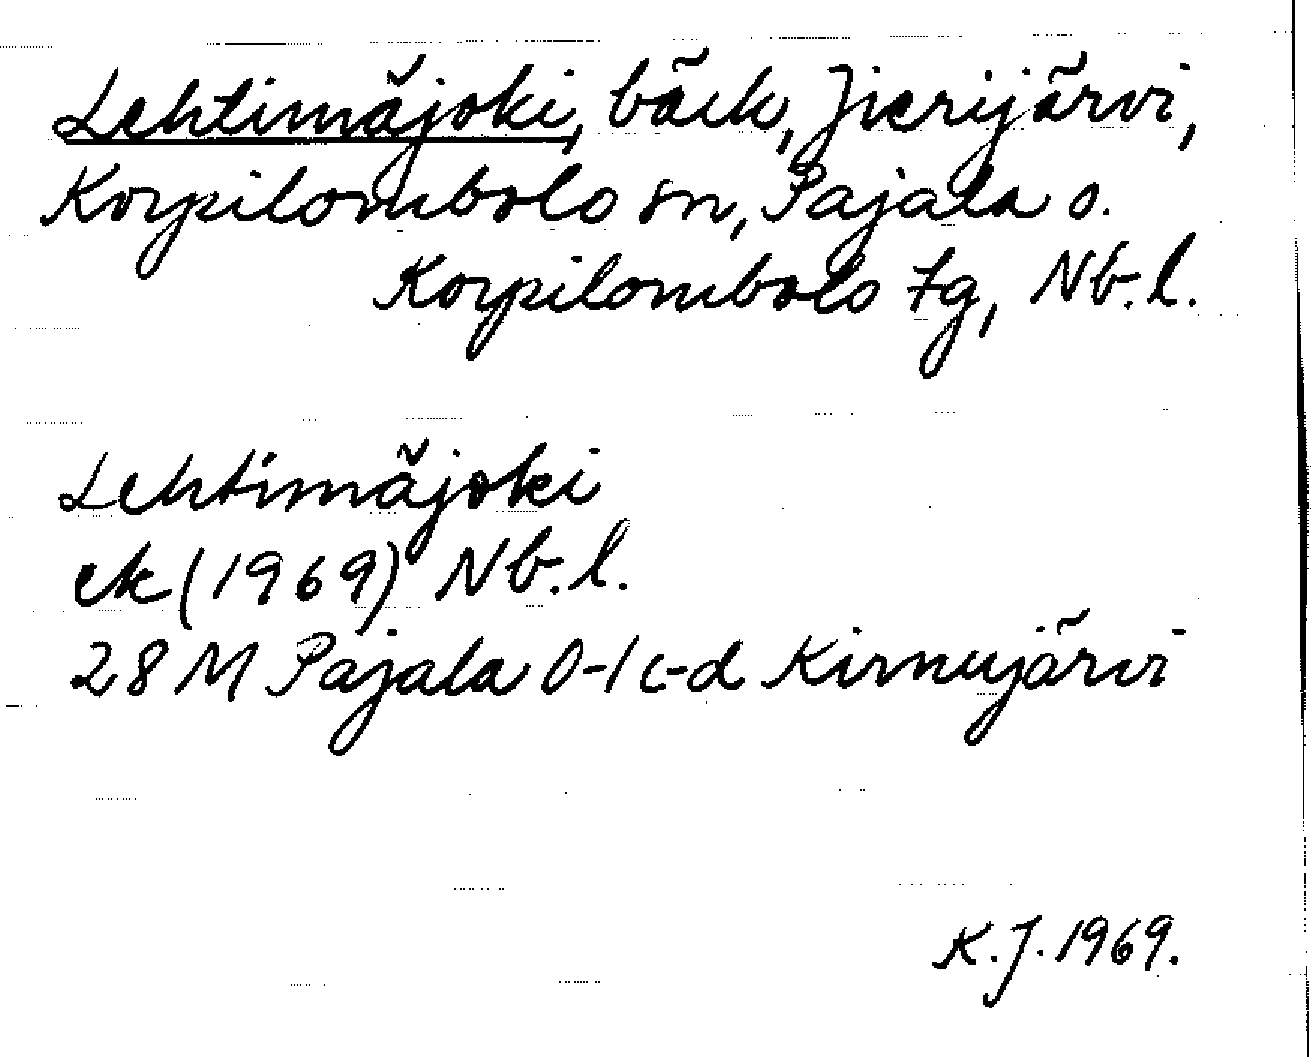 Lehtimäjoki, bäck, Jierijärvi,
Korpilombolo sn, Pajala o.
Korpilombolo tg, Nb.l.
Lehtimäjoki
ek (1969) Nb.l.
28 M Pajala 0-1 c-d Kirnujärvi
K.J. 1969.